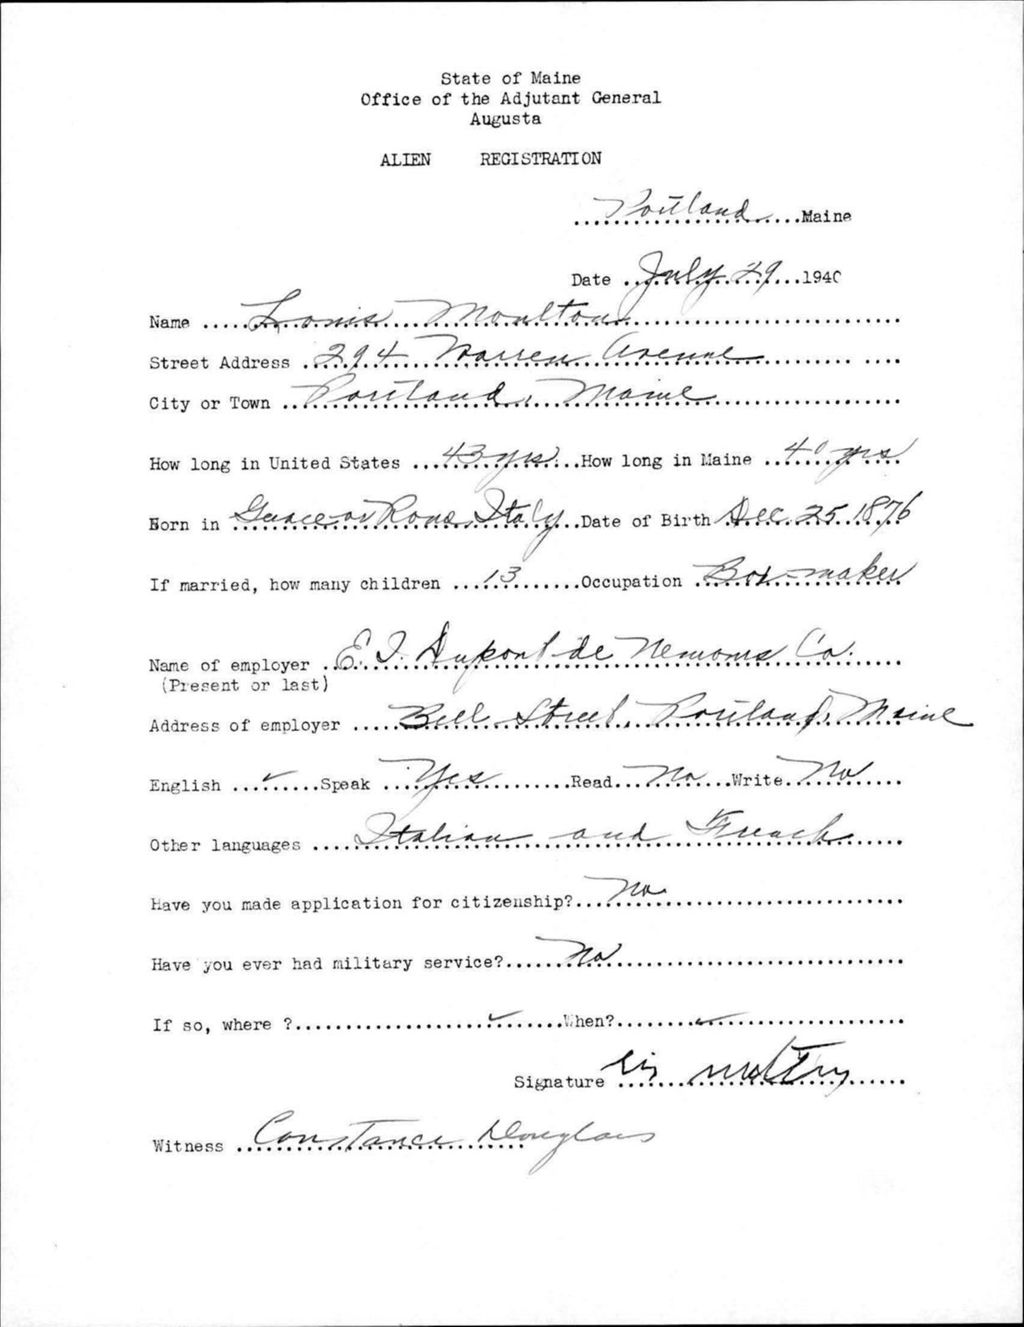 State of Maine
Office of the Adjutant General
Augusta
ALIEN REGISTRATION
Portland Maine
Date July 29 1940
Name Louis Moulton
Street Address 294 Warren Avenue
City or Town Portland, Maine
How long in United States 43 yrs. How long in Maine 40 yrs
Born in Italy Date of Birth Dec. 25 1876
If married, how many children 13 Occupation Box-maker
Name of employer E. I. Dupont de Nemours Co.
(Present or last)
Address of employer Bell Street, Portland, Maine
English ✓ Speak Yes Read No Write No
Other languages Italian and French
Have you made application for citizenship? No
Have you ever had military service? No
If so, where ? ✓ When? ✓
Signature
Witness Constance Douglass